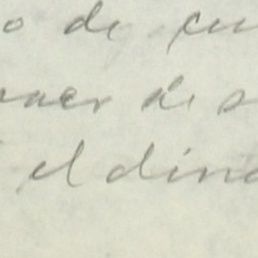 o de cu
ner de s
el dine